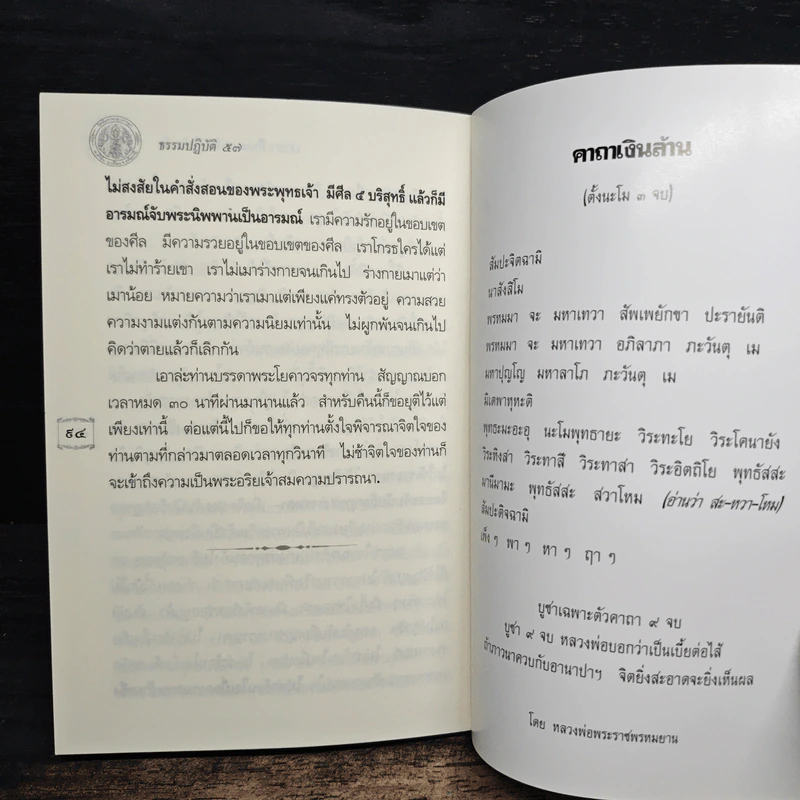 ธรรมปฏิบัติ ๕๗
ไม่สงสัยในคำสั่งสอนของพระพุทธเจ้า มีศีล ๕ บริสุทธิ์ แล้วก็มี
อารมณ์จับพระนิพพานเป็นอารมณ์ เรามีความรักอยู่ในขอบเขต
ของศีล มีความรวยอยู่ในขอบเขตของศีล เราโกรธใครได้แต่
เราไม่ทำร้ายเขา เราไม่เมาร่างกายจนเกินไป ร่างกายเมาแต่ว่า
เมาน้อย หมายความว่าเราเมาแต่เพียงแค่ทรงตัวอยู่ ความสวย
ความงามแต่งกันตามความนิยมเท่านั้น ไม่ผูกพันจนเกินไป
คิดว่าตายแล้วก็เลิกกัน
เอาล่ะท่านบรรดาพระโยคาวจรทุกท่าน สัญญาณบอก
เวลาหมด ๓๐ นาทีผ่านมานานแล้ว สำหรับคืนนี้ก็ขอยุติไว้แต่
เพียงเท่านี้ ต่อแต่นี้ไปก็ขอให้ทุกท่านตั้งใจพิจารณาจิตใจของ
ท่านตามที่กล่าวมาตลอดเวลาทุกวินาที ไม่ช้าจิตใจของท่านก็
จะเข้าถึงความเป็นพระอริยเจ้าสมความปรารถนา.
๙๔
คาถาเงินล้าน
(ตั้งนะโม ๓ จบ)
สัมปะจิตฉามิ
นาสังสิโม
พรหมมา จะ มหาเทวา สัพเพยักขา ปะรายันติ
พรหมมา จะ มหาเทวา อภิลาภา ภะวันตุ เม
มหาปุญโญ มหาลาโภ ภะวันตุ เม
มิเตพาหุหะติ
พุทธะมะอะอุ นะโมพุทธายะ วิระทะโย วิระโคนายัง
วิระหิงสา วิระทาสี วิระทาสา วิระอิตถิโย พุทธัสสะ
มานีมามะ พุทธัสสะ สวาโหม (อ่านว่า สะ-หวา-โหม)
สัมปะติจฉามิ
เพ็ง ๆ พา ๆ หา ๆ ฤา ๆ
บูชาเฉพาะตัวคาถา ๙ จบ
บูชา ๙ จบ หลวงพ่อบอกว่าเป็นเบี้ยต่อไส้
ถ้าภาวนาควบกับอานาปาฯ จิตยิ่งสะอาดจะยิ่งเห็นผล
โดย หลวงพ่อพระราชพรหมยาน